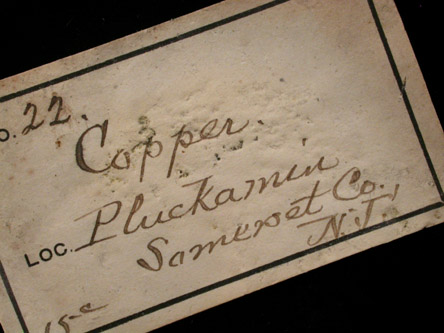 o. 22.
Copper.
LOC. Pluckamin
Somerset Co.,
N.J.
15c